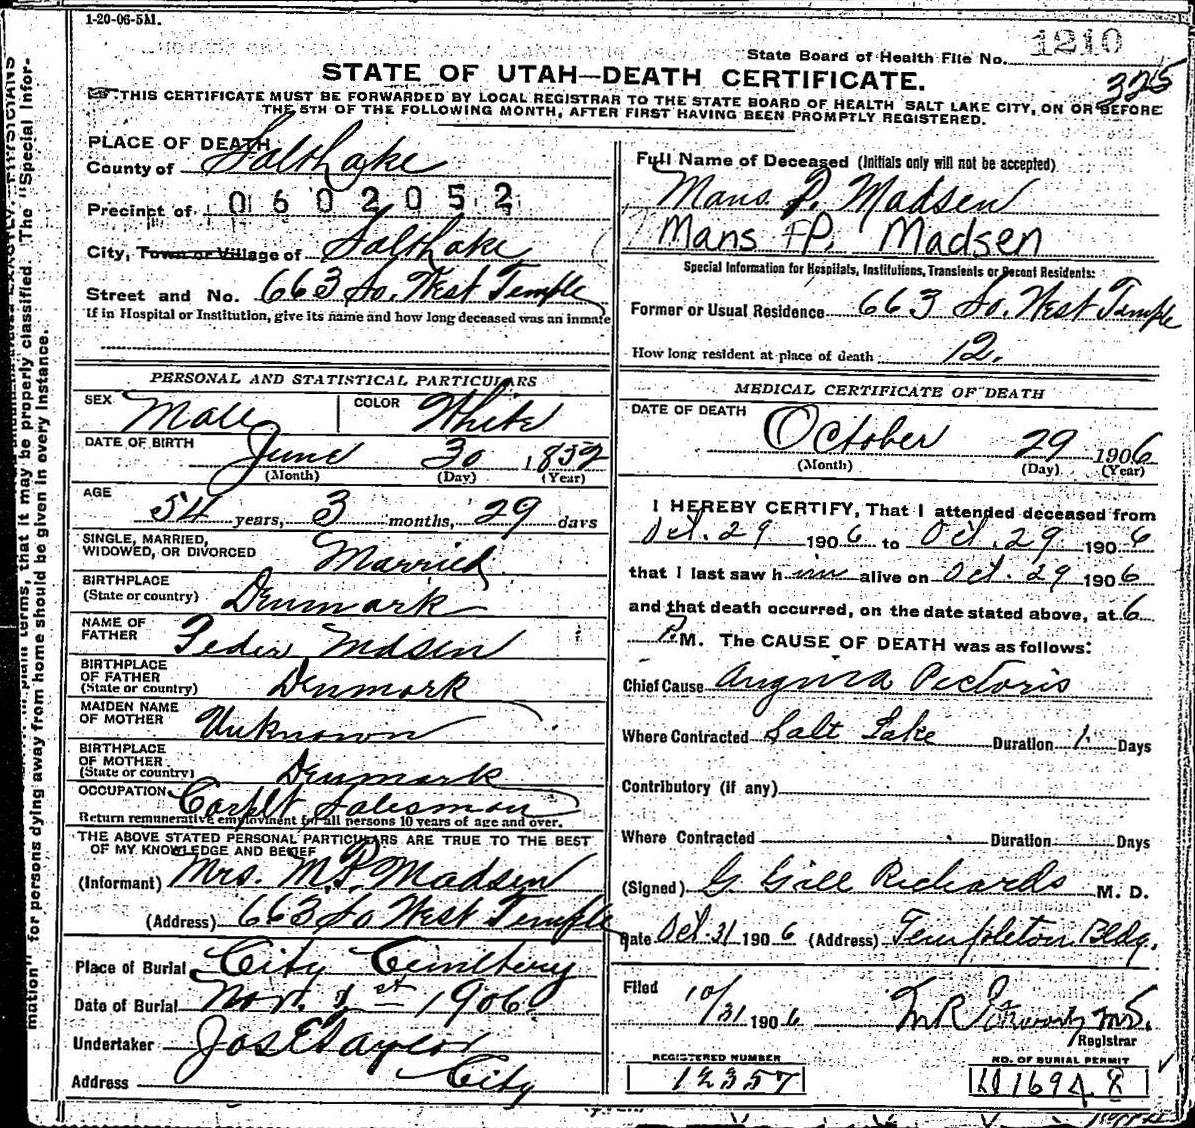 1-20-06-5M.
State Board of Health File No. 1210
325
STATE OF UTAH—DEATH CERTIFICATE.
THIS CERTIFICATE MUST BE FORWARDED BY LOCAL REGISTRAR TO THE STATE BOARD OF HEALTH SALT LAKE CITY, ON OR BEFORE
THE 5TH OF THE FOLLOWING MONTH, AFTER FIRST HAVING BEEN PROMPTLY REGISTERED.
PLACE OF DEATH
County of Salt Lake
Precinct of 0602052
City, Town or Village of Salt Lake
Street and No. 663 So. West Temple
If in Hospital or Institution, give its name and how long deceased was an inmate
PERSONAL AND STATISTICAL PARTICULARS
SEX Male COLOR White
DATE OF BIRTH June 30 1852
(Month) (Day) (Year)
AGE 54 years, 3 months, 29 days
SINGLE, MARRIED,
WIDOWED, OR DIVORCED Married
BIRTHPLACE
(State or country) Denmark
NAME OF
FATHER Peder Madsen
BIRTHPLACE
OF FATHER
(State or country) Denmark
MAIDEN NAME
OF MOTHER Unknown
BIRTHPLACE
OF MOTHER
(State or country) Denmark
OCCUPATION Carpet Salesman
Return remunerative employment for all persons 10 years of age and over.
THE ABOVE STATED PERSONAL PARTICULARS ARE TRUE TO THE BEST
OF MY KNOWLEDGE AND BELIEF
(Informant) Mrs. M.P. Madsen
(Address) 663 So West Temple
Place of Burial City Cemetery
Date of Burial Nov. 1st 1906
Undertaker Jos E Taylor
Address City
Full Name of Deceased (Initials only will not be accepted)
Mans P. Madsen
Mans P. Madsen
Special Information for Hospitals, Institutions, Transients or Recent Residents:
Former or Usual Residence 663 So. West Temple
How long resident at place of death 12.
MEDICAL CERTIFICATE OF DEATH
DATE OF DEATH
October 29 1906
(Month) (Day) (Year)
I HEREBY CERTIFY, That I attended deceased from
Oct. 29 1906 to Oct. 29 1906
that I last saw him alive on Oct. 29 1906
and that death occurred, on the date stated above, at 6
P.M. The CAUSE OF DEATH was as follows:
Chief Cause Angina Pectoris
Where Contracted Salt Lake Duration 1 Days
Contributory (if any)
Where Contracted Duration Days
(Signed) G. Gill Richards M. D.
Date Oct. 31 1906 (Address) Templeton Bldg.
Filed
10/31 1906
Registrar
REGISTERED NUMBER
12357
NO. OF BURIAL PERMIT
mation" for persons dying away from home should be given in every instance.
terms, that it may be properly classified. The "Special Infor-